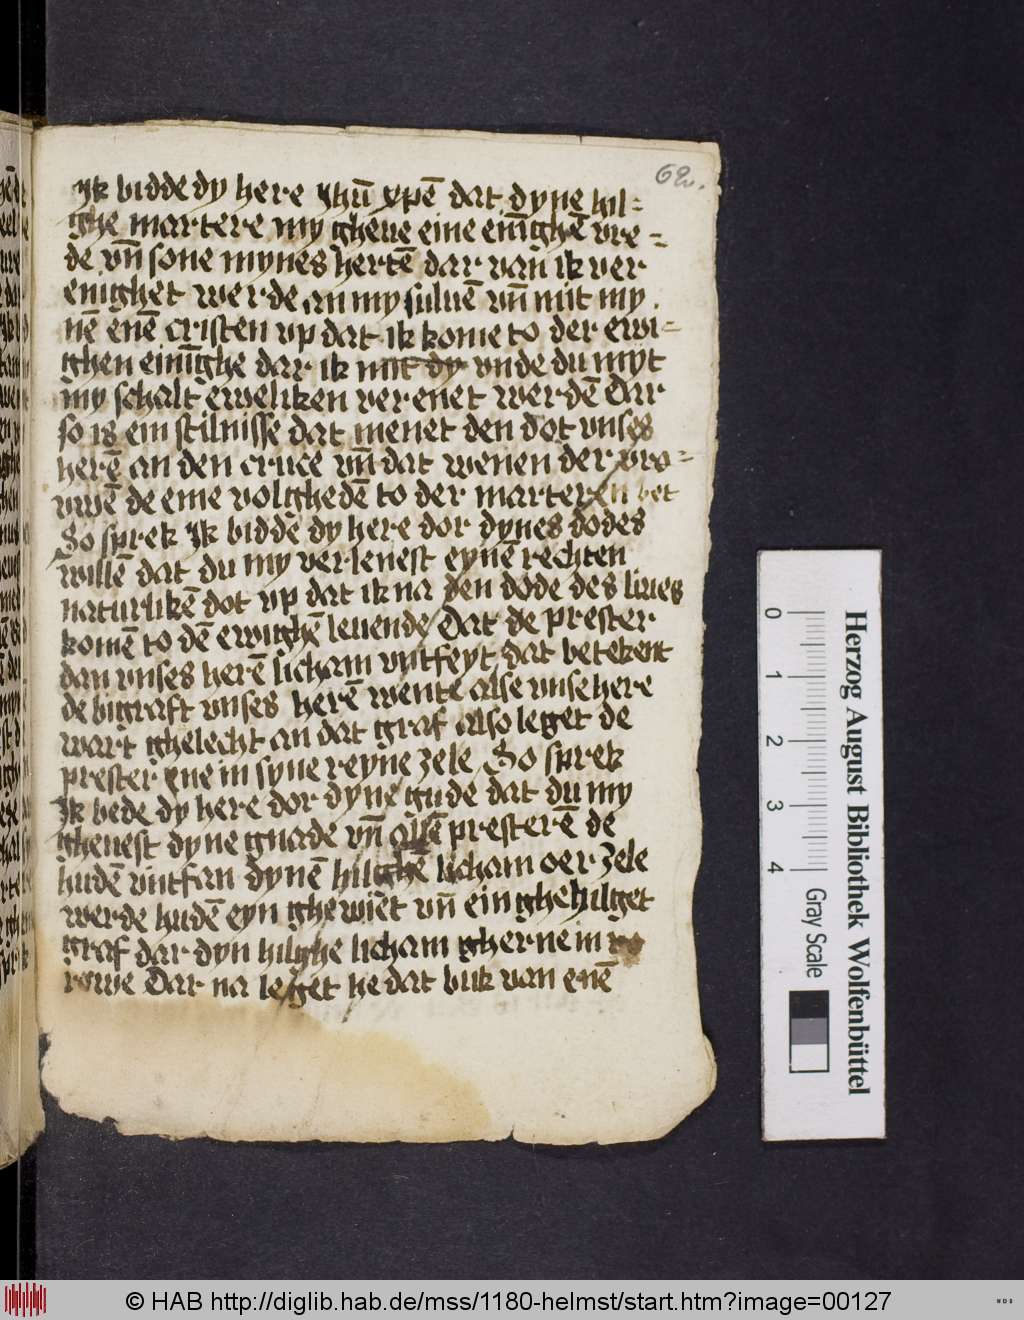 62.
Jk bidde dy here Jhū xpē dat dyne hil=
ghe martere my gheue eine einīghē vre=
de vn̄ sone mynes hertē dar van ik ver
enighet werde an my suluē vn̄ mit my
nē enē cristen vp dat ik kome to der ewi=
ghen einīghe dar ik mit dy vnde du myt
my schalt eweliken verenet werdē Dar
so is ein stilnisse dat menet den dot vnses
herē an den cruce vn̄ dat wenen der vro=
vwē de eme volghedē to der marteren bet
So sprek Jk bidde dy here dor dynes dodes
willē dat du my verlenest eynē rechten
naturlikē dot vp dat ik na den dode des liues
komē to dē ewighē leuende Dat de prester
dan vnses herē licham vntfeyt dat betekent
de bigraft vnses herē wente alse vnse here
wart ghelecht an dat graf also leget de
prester ene in syne reyne zele So sprek
Jk bede dy here dor dyne gude dat du my
gheuest dyne gnade vn̄ allē presterē de
hudē vntfan dynē hilghē licham oer zele
werde hudē eyn ghewiet vn̄ ein ghehilget
graf dar dyn hilghe licham gherne in
rowe Dar na leget he dat buk van enē
Herzog August Bibliothek Wolfenbüttel
0 1 2 3 4 Gray Scale
© HAB http://diglib.hab.de/mss/1180-helmst/start.htm?image=00127